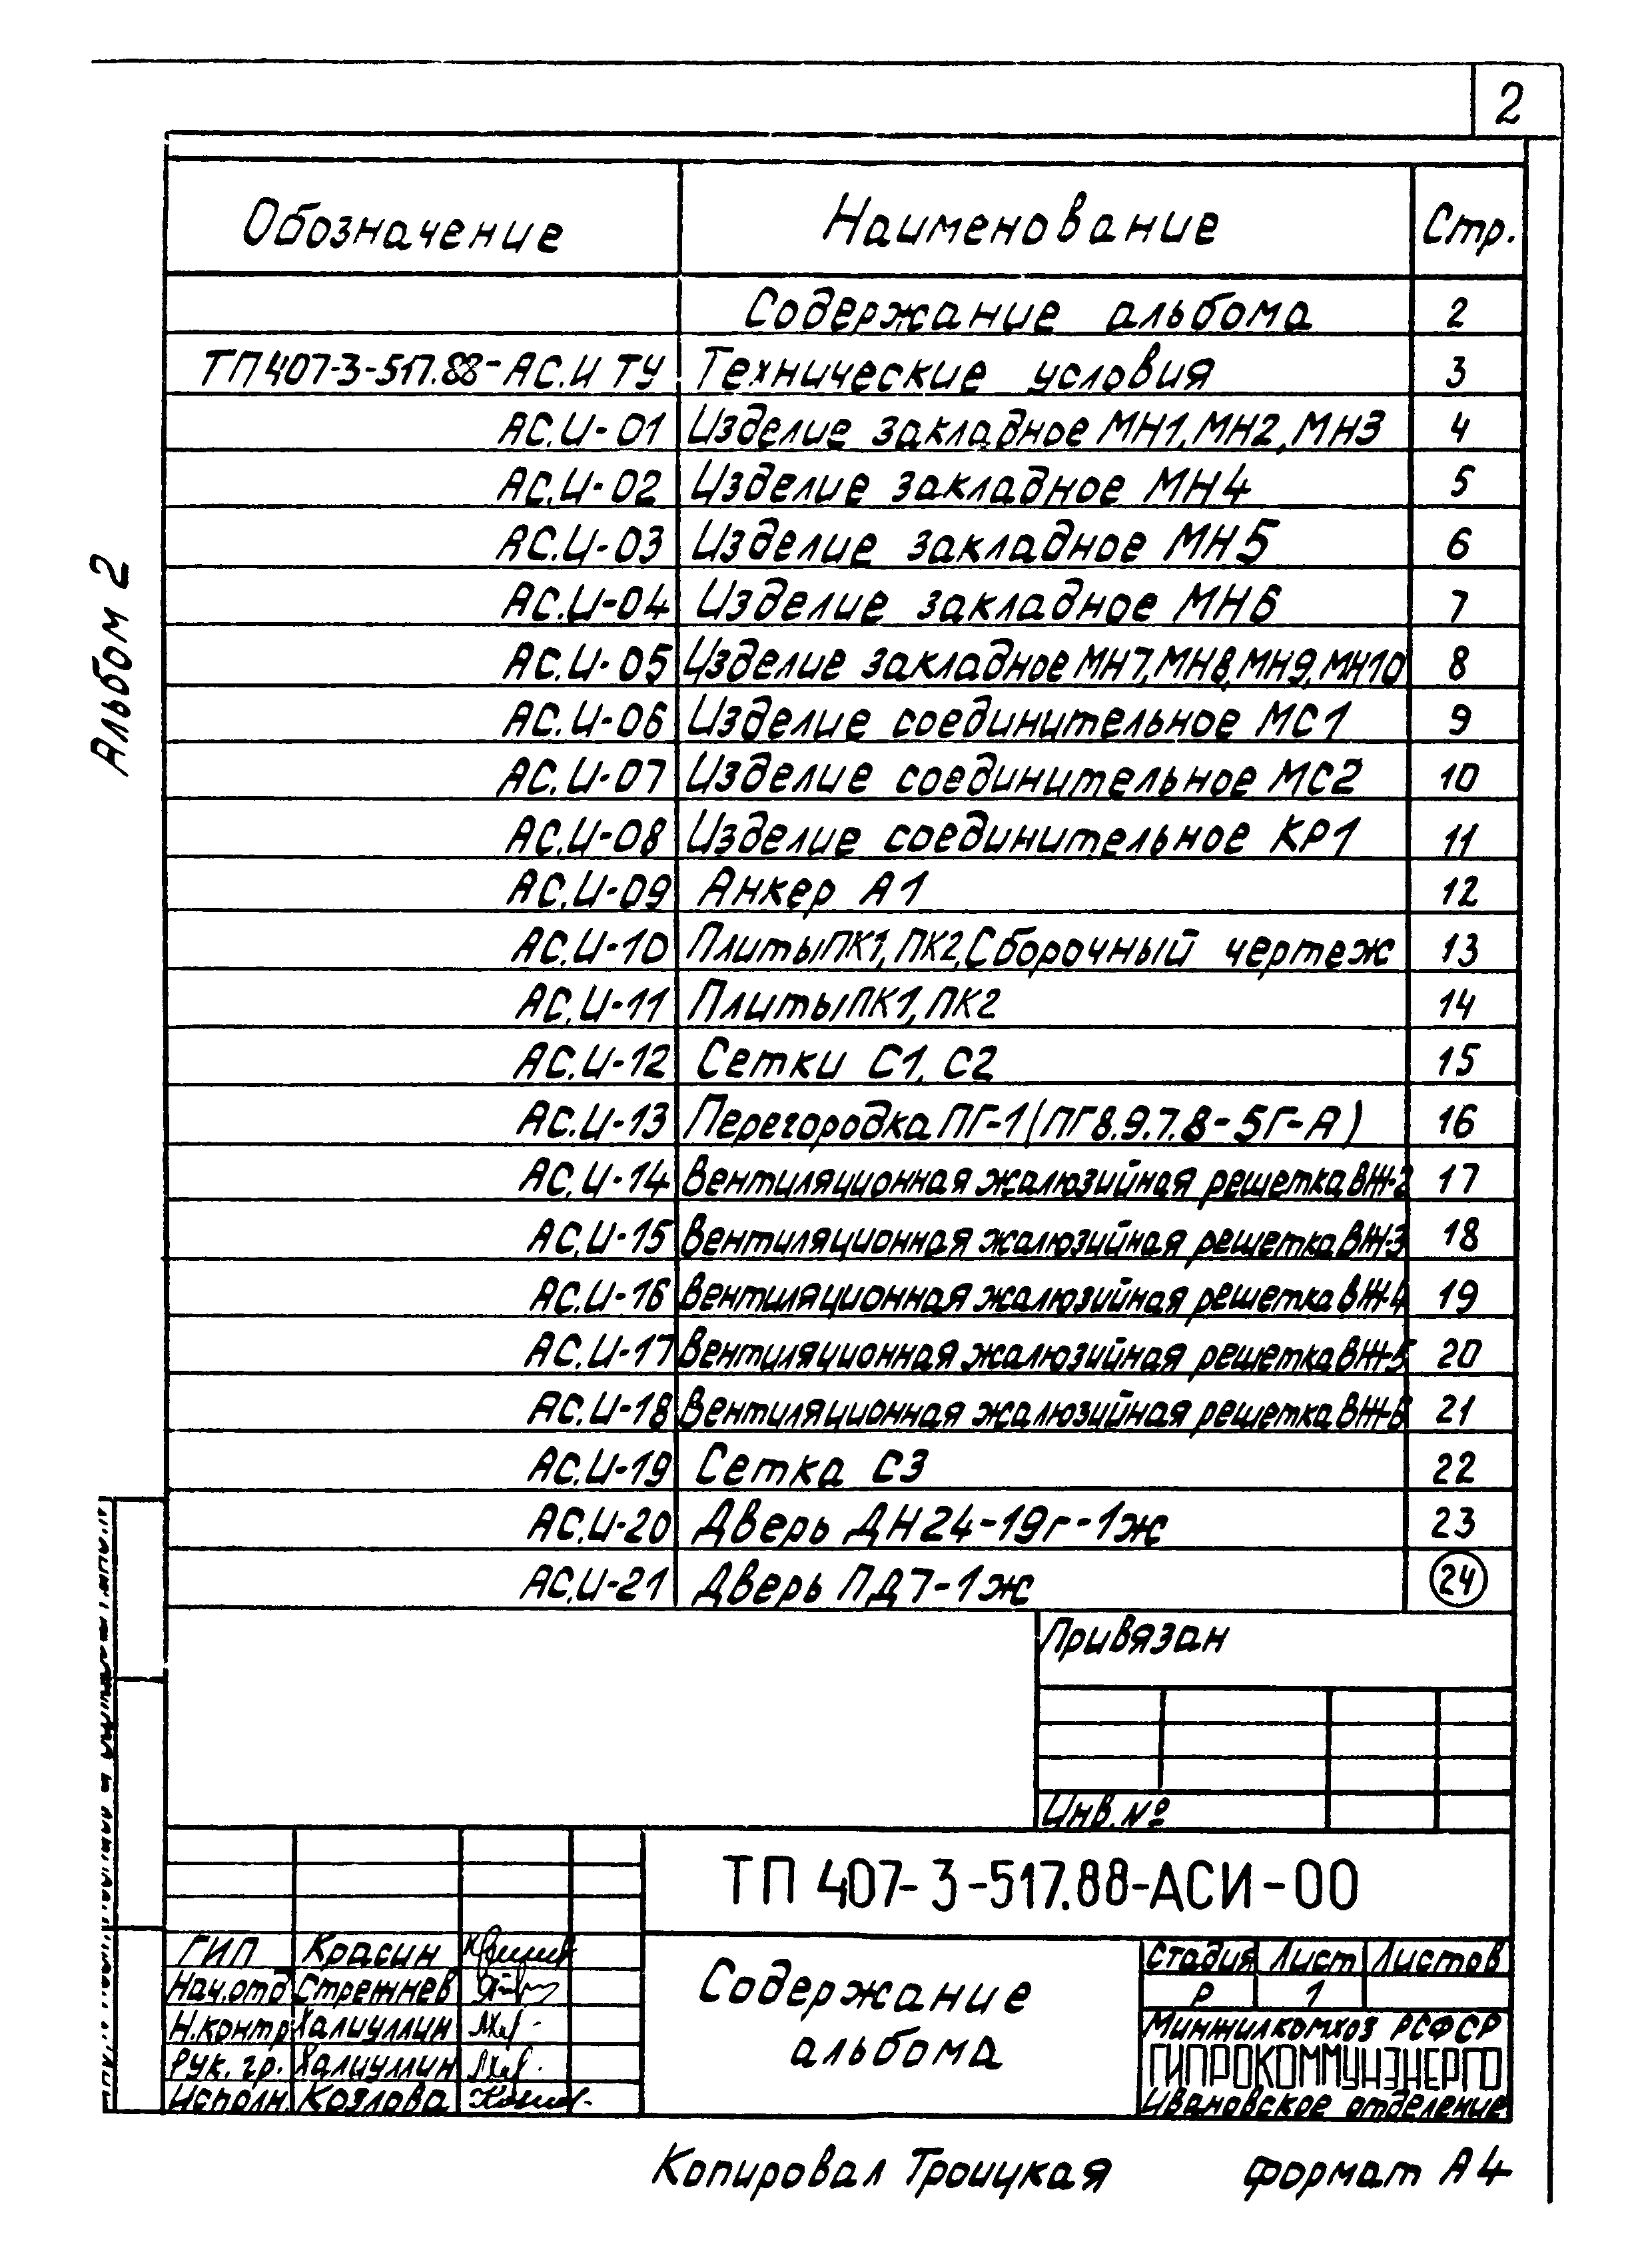 2
Обозначение Наименование Стр.
Содержание альбома 2
ТП 407-3-517.88-АС.И ТУ Технические условия 3
АС.И-01 Изделие закладное МН1, МН2, МН3 4
АС.И-02 Изделие закладное МН4 5
АС.И-03 Изделие закладное МН5 6
АС.И-04 Изделие закладное МН6 7
АС.И-05 Изделие закладное МН7, МН8, МН9, МН10 8
АС.И-06 Изделие соединительное МС1 9
АС.И-07 Изделие соединительное МС2 10
АС.И-08 Изделие соединительное КР1 11
АС.И-09 Анкер А1 12
АС.И-10 Плиты ПК1, ПК2, Сборочный чертеж 13
АС.И-11 Плиты ПК1, ПК2 14
АС.И-12 Сетки С1, С2 15
АС.И-13 Перегородка ПГ-1 (ПГ 8.9.7.8-5Г-А) 16
АС.И-14 Вентиляционная жалюзийная решетка ВЖ-2 17
АС.И-15 Вентиляционная жалюзийная решетка ВЖ-3 18
АС.И-16 Вентиляционная жалюзийная решетка ВЖ-4 19
АС.И-17 Вентиляционная жалюзийная решетка ВЖ-5 20
АС.И-18 Вентиляционная жалюзийная решетка ВЖ-6 21
АС.И-19 Сетка С3 22
АС.И-20 Дверь ДН24-19г-1ж 23
АС.И-21 Дверь ПД7-1ж 24
Альбом 2
Привязан
Инв. №
ТП 407-3-517.88-АСИ-00
ГИП Красин
Нач.отд Стрежнев
Н.контр Халиуллин
Рук. гр. Халиуллин
Исполн. Козлова
Содержание
альбома
Стадия Лист Листов
Р 1
Минжилкомхоз РСФСР
ГИПРОКОММУНЭНЕРГО
Ивановское отделение
Копировал Троицкая формат А4